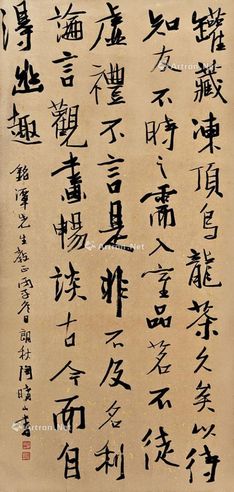 罐藏凍頂烏龍茶久矣以待
知友不時之需入室品茗不徒
虛禮不言是非不及名利
論言觀畫暢談古今而自
得幽趣
銘潭先生教正丙子冬日朗秋陶晴山書
Artron.Net